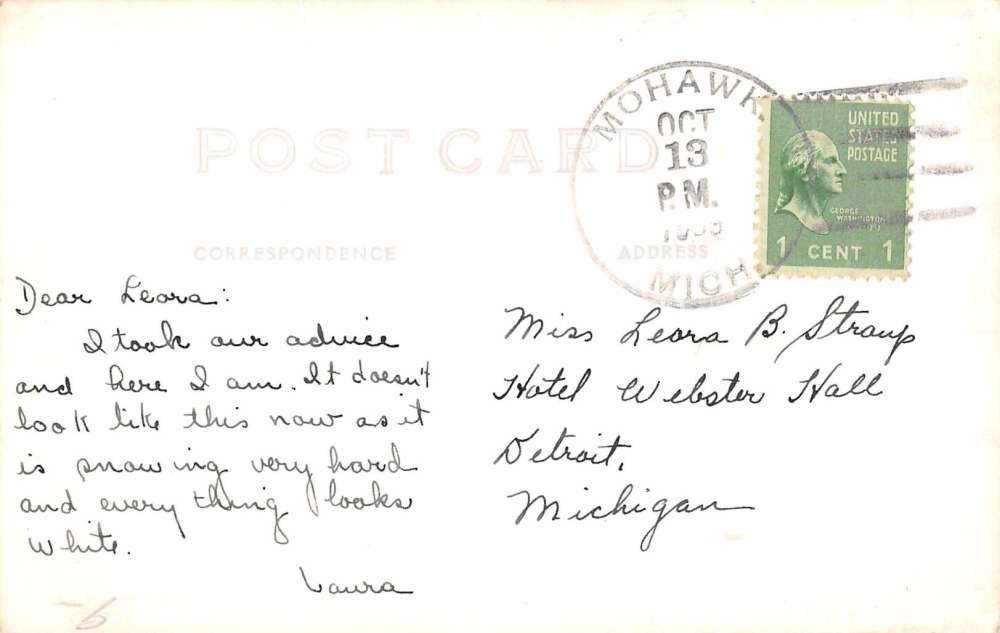 MOHAWK.
OCT
13
P.M.
MICH.
UNITED
STATES
POSTAGE
GEORGE
WASHINGTON
1 CENT 1
POST CARD
CORRESPONDENCE
ADDRESS
Dear Leora:
I took our advice
and here I am. It doesn't
look like this now as it
is snowing very hard
and every thing looks
white.
Laura
Miss Leora B. Straup
Hotel Webster Hall
Detroit,
Michigan